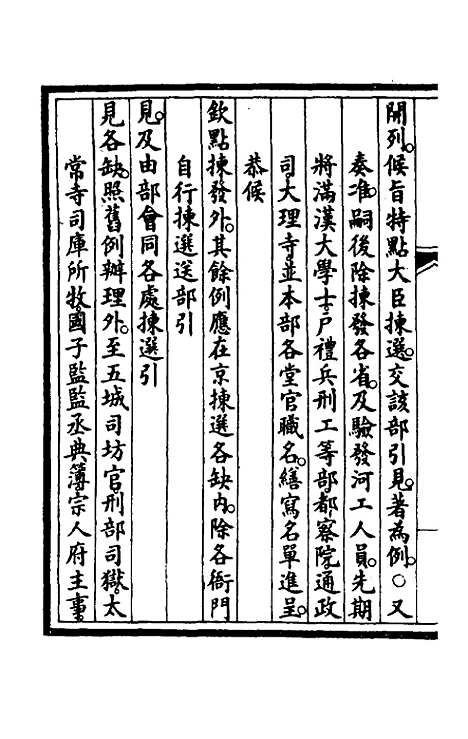 開列。候旨特點大臣揀選。交該部引見。著為例。○又
奏准。嗣後除揀發各省。及驗發河工人員。先期
將滿漢大學士。戶禮兵刑工等部都察院通政
司。大理寺。並本部各堂官職名。繕寫名單進呈。
恭候
欽點揀發外。其餘例應在京揀選各缺內。除各衙門
自行揀選送部引
見。及由部會同各處揀選引
見各缺。照舊例辦理外。至五城司坊官刑部司獄。太
常寺司庫所牧國子監監丞典簿宗人府主事。